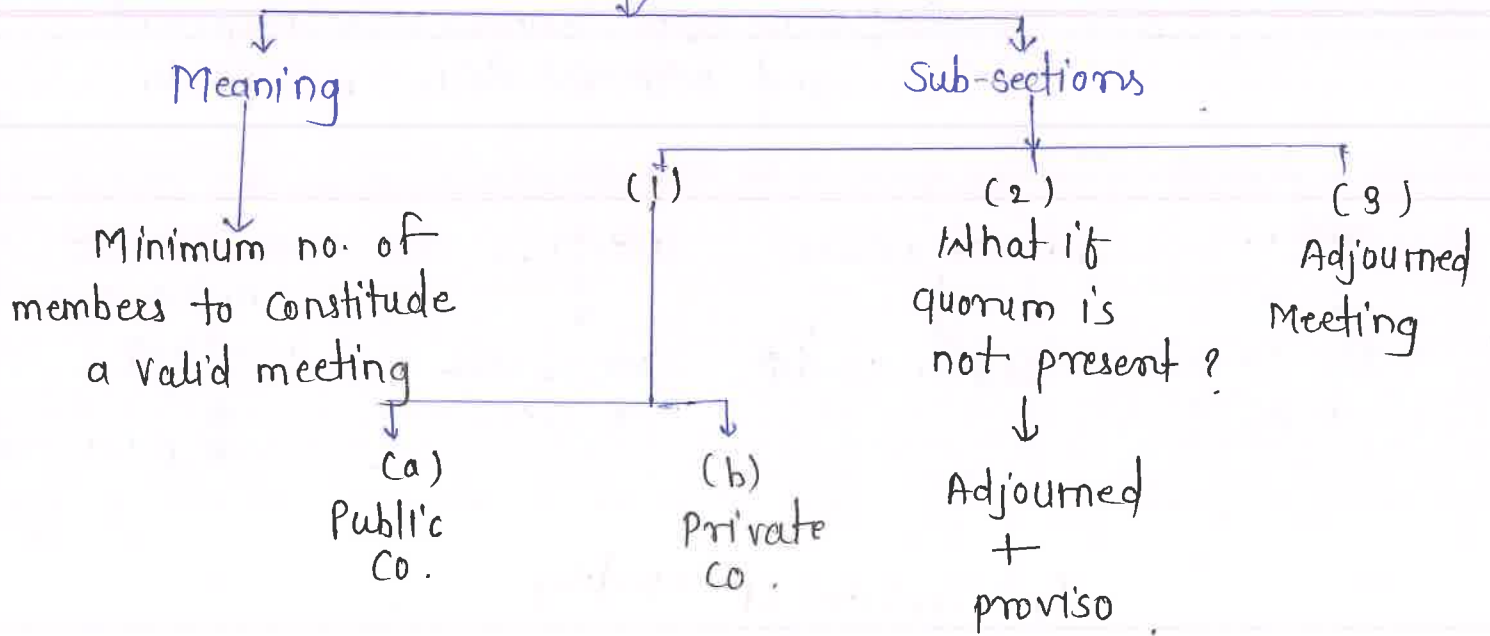 Meaning
Minimum no. of
members to constitude
a valid meeting
Sub-sections
(1)
(a)
Public
Co.
(b)
Private
Co.
(2)
What if
quorum is
not present ?
Adjourned
+
proviso.
(3)
Adjourned
Meeting